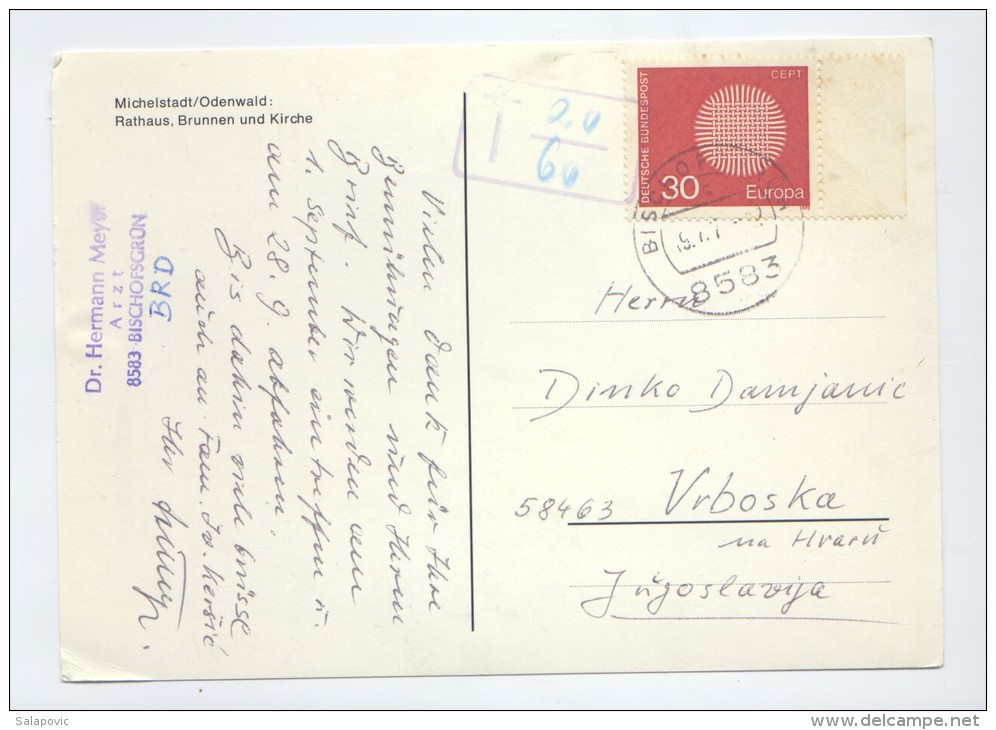 Michelstadt/Odenwald:
Rathaus, Brunnen und Kirche
Dr. Hermann Meyer
Arzt
8583 BISCHOFSGRÜN
BRD
Vielen Dank für Ihre
Bemühungen und Ihren
Brief. Wir werden am
1. September eintreffen u.
am 28. 9. abfahren.
Bis dahin viele Grüsse
auch an Fam. Iv. Keršić
Ihr
T
20
60
DEUTSCHE BUNDESPOST
CEPT
30
Europa
8583
Herrn
Dinko Damjanić
58463 Vrboska
na Hvaru
Jugoslavija
Salapovic
delcampe.net